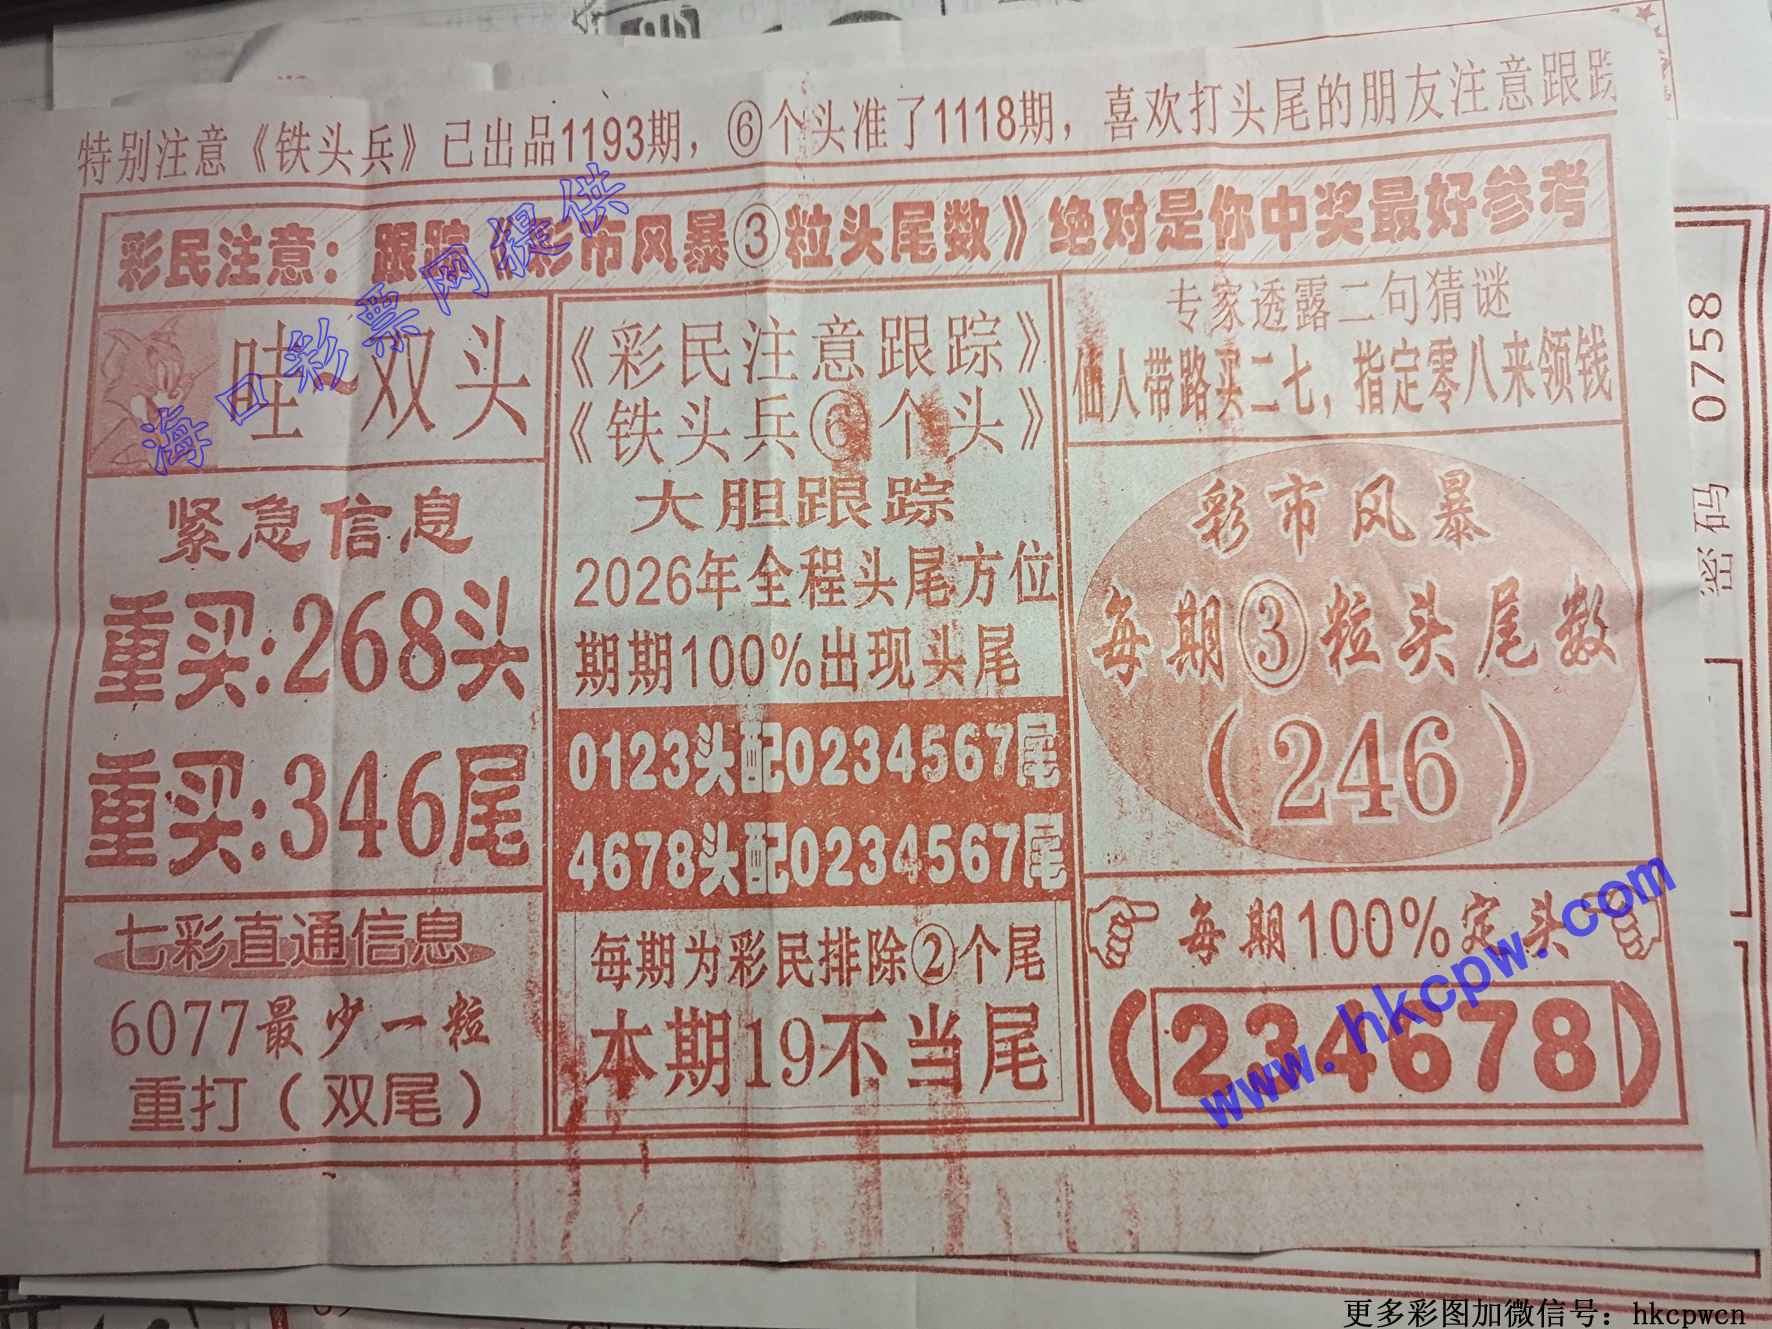 特别注意《铁头兵》已出品1193期，⑥个头准了1118期，喜欢打头尾的朋友注意跟踪
彩民注意：跟踪《彩市风暴③粒头尾数》绝对是你中奖最好参考
哇~双头
紧急信息
重买:268头
重买:346尾
七彩直通信息
6077最少一粒
重打（双尾）
《彩民注意跟踪》
《铁头兵⑥个头》
大胆跟踪
2026年全程头尾方位
期期100%出现头尾
0123头配0234567尾
4678头配0234567尾
每期为彩民排除②个尾
本期19不当尾
专家透露二句猜谜
仙人带路买二七，指定零八来领钱
彩市风暴
每期③粒头尾数
（246）
每期100%定头
（234678）
密码 0758
海口彩票网提供
www.hkcpw.com
更多彩图加微信号：hkcpwcn